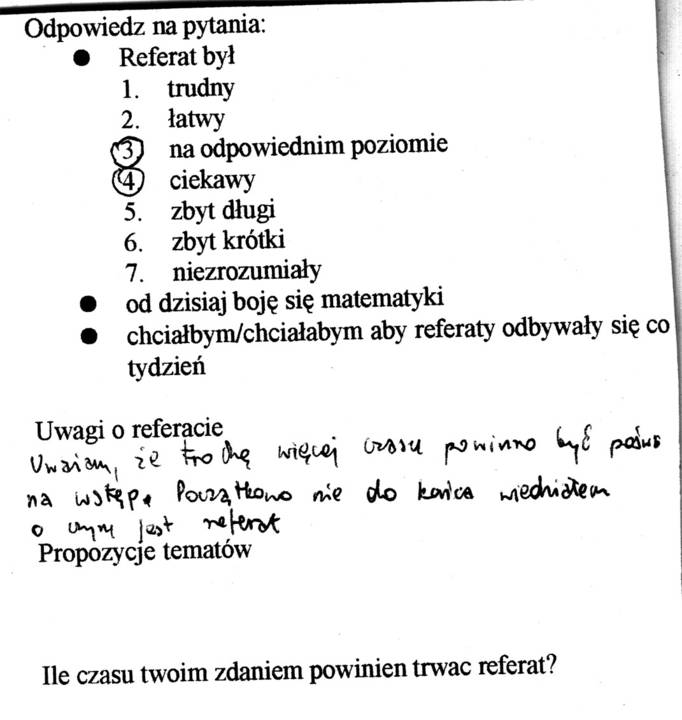 Odpowiedz na pytania:
● Referat był
1. trudny
2. łatwy
3. na odpowiednim poziomie
4. ciekawy
5. zbyt długi
6. zbyt krótki
7. niezrozumiały
● od dzisiaj boję się matematyki
● chciałbym/chciałabym aby referaty odbywały się co
tydzień
Uwagi o referacie
Uważam, że trochę więcej czasu powinno być
na wstęp. Początkowo nie do końca wiedziałem
o czym jest referat
Propozycje tematów
Ile czasu twoim zdaniem powinien trwac referat?